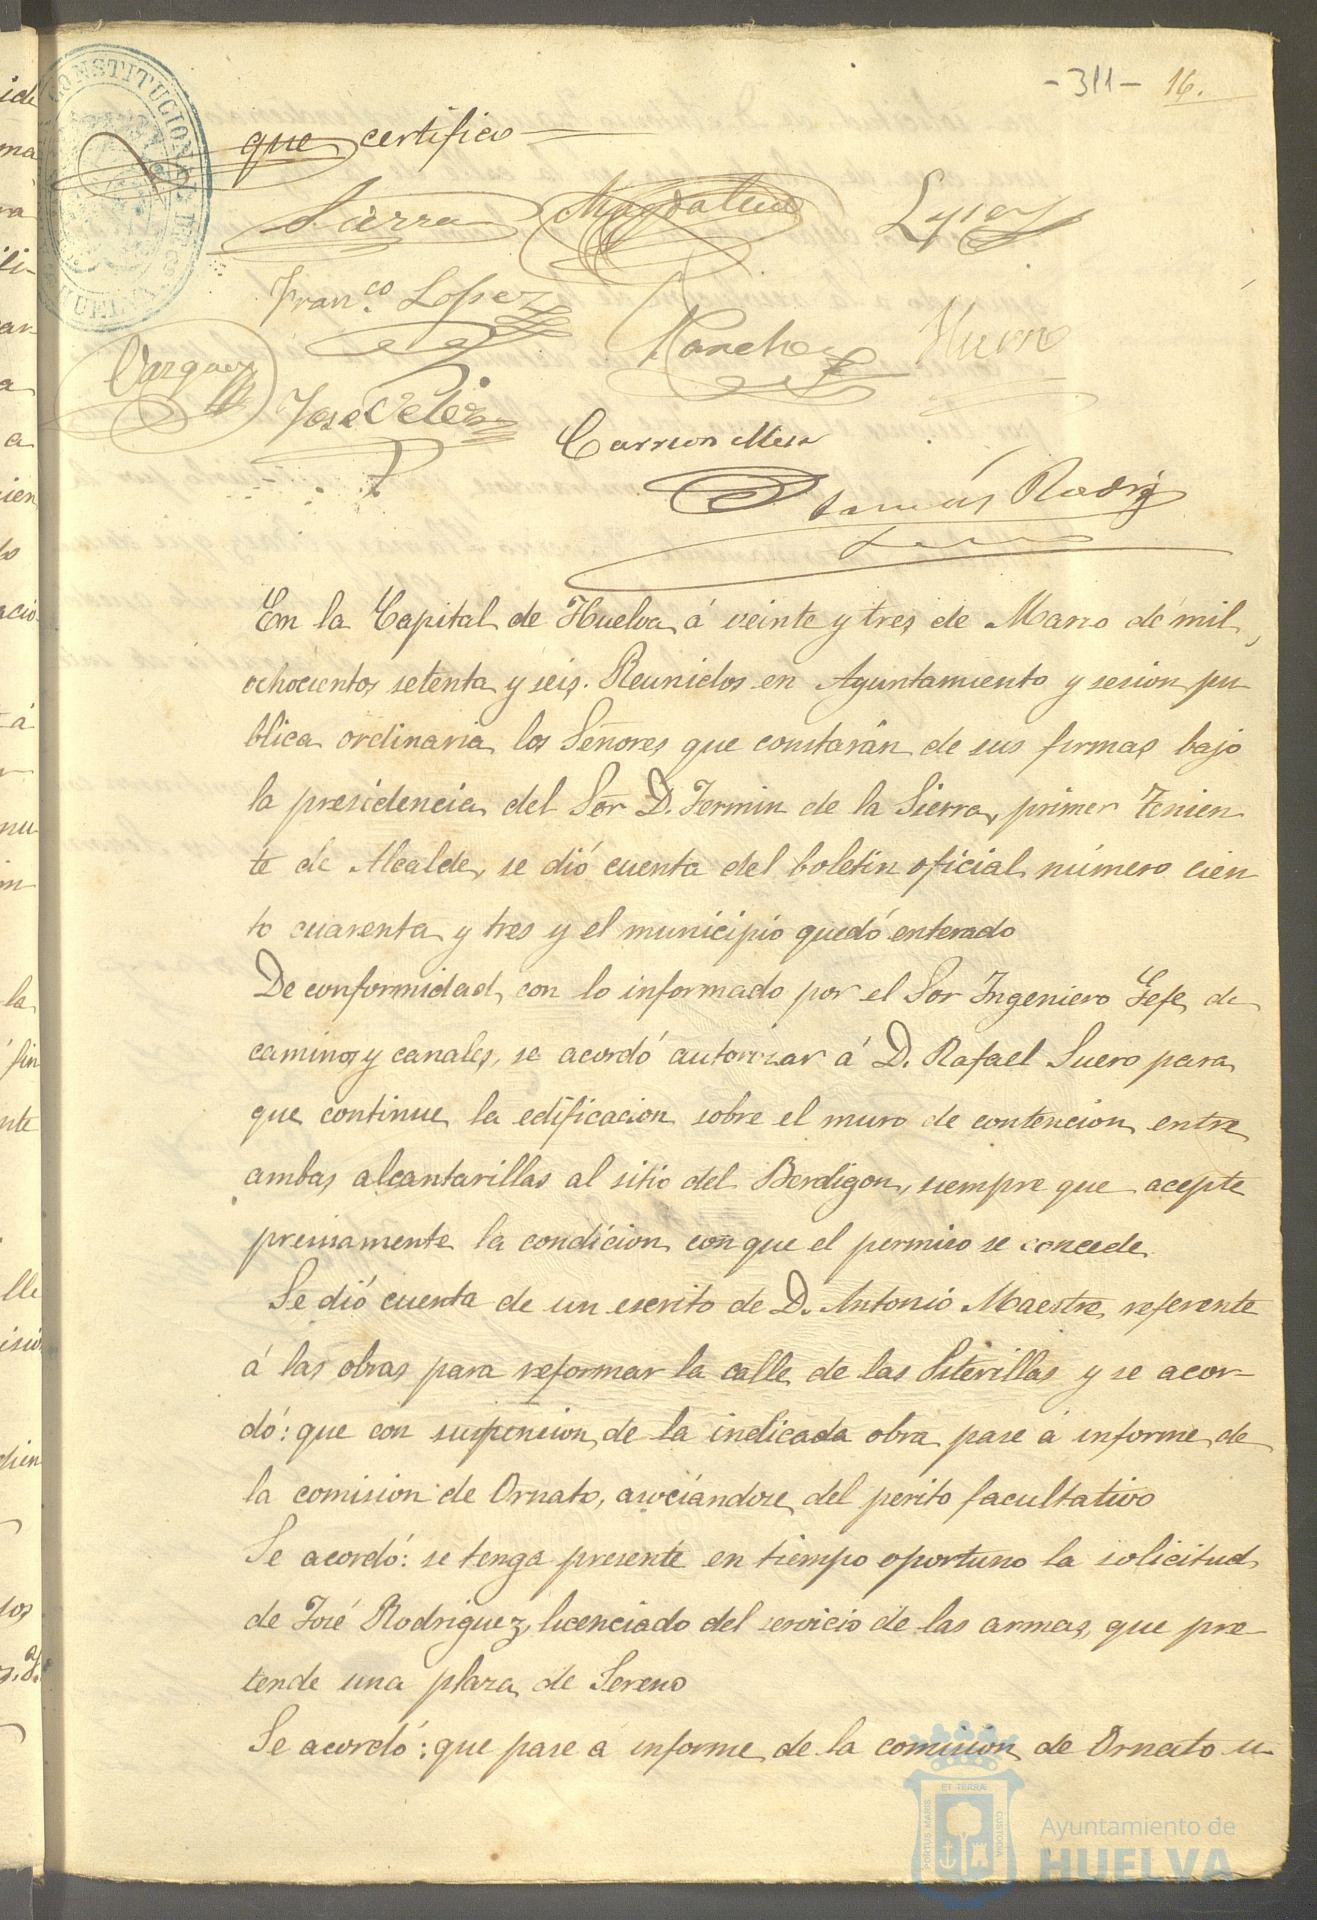 -311- 16.
CONSTITUCIONAL
HUELVA
que certifico
Sierra Magdalena Lopez
Fran.co Lopez
Sanchez
Vazquez
José Velez
Carrion Mesa
Tomás Rodrig
En la Capital de Huelva á veinte y tres de Marzo de mil
ochocientos setenta y seis. Reunidos en Ayuntamiento y sesion pu
blica ordinaria los Señores que constarán de sus firmas bajo
la presidencia del Sor D. Fermin de la Sierra, primer Tenien
te de Alcalde, se dió cuenta del boletin oficial número cien
to cuarenta y tres y el municipio quedó enterado
De conformidad con lo informado por el Sor Ingeniero Gefe de
caminos y canales, se acordó autorizar á D. Rafael Suero para
que continue la edificacion sobre el muro de contencion entre
ambas alcantarillas al sitio del Berdigon, siempre que acepte
previamente la condicion con que el permiso se concede
Se dió cuenta de un escrito de D. Antonio Maestre referente
á las obras para reformar la calle de las Siterillas y se acor-
dó: que con suspension de la indicada obra pase á informe de
la comision de Ornato, asociándose del perito facultativo
Se acordó: se tenga presente en tiempo oportuno la solicitud
de José Rodriguez, licenciado del servicio de las armas, que pre-
tende una plaza de Sereno
Se acordó: que pase á informe de la comision de Ornato u-
ET TERRÆ
PORTUS MARIS
CUSTODIA
Ayuntamiento de
HUELVA